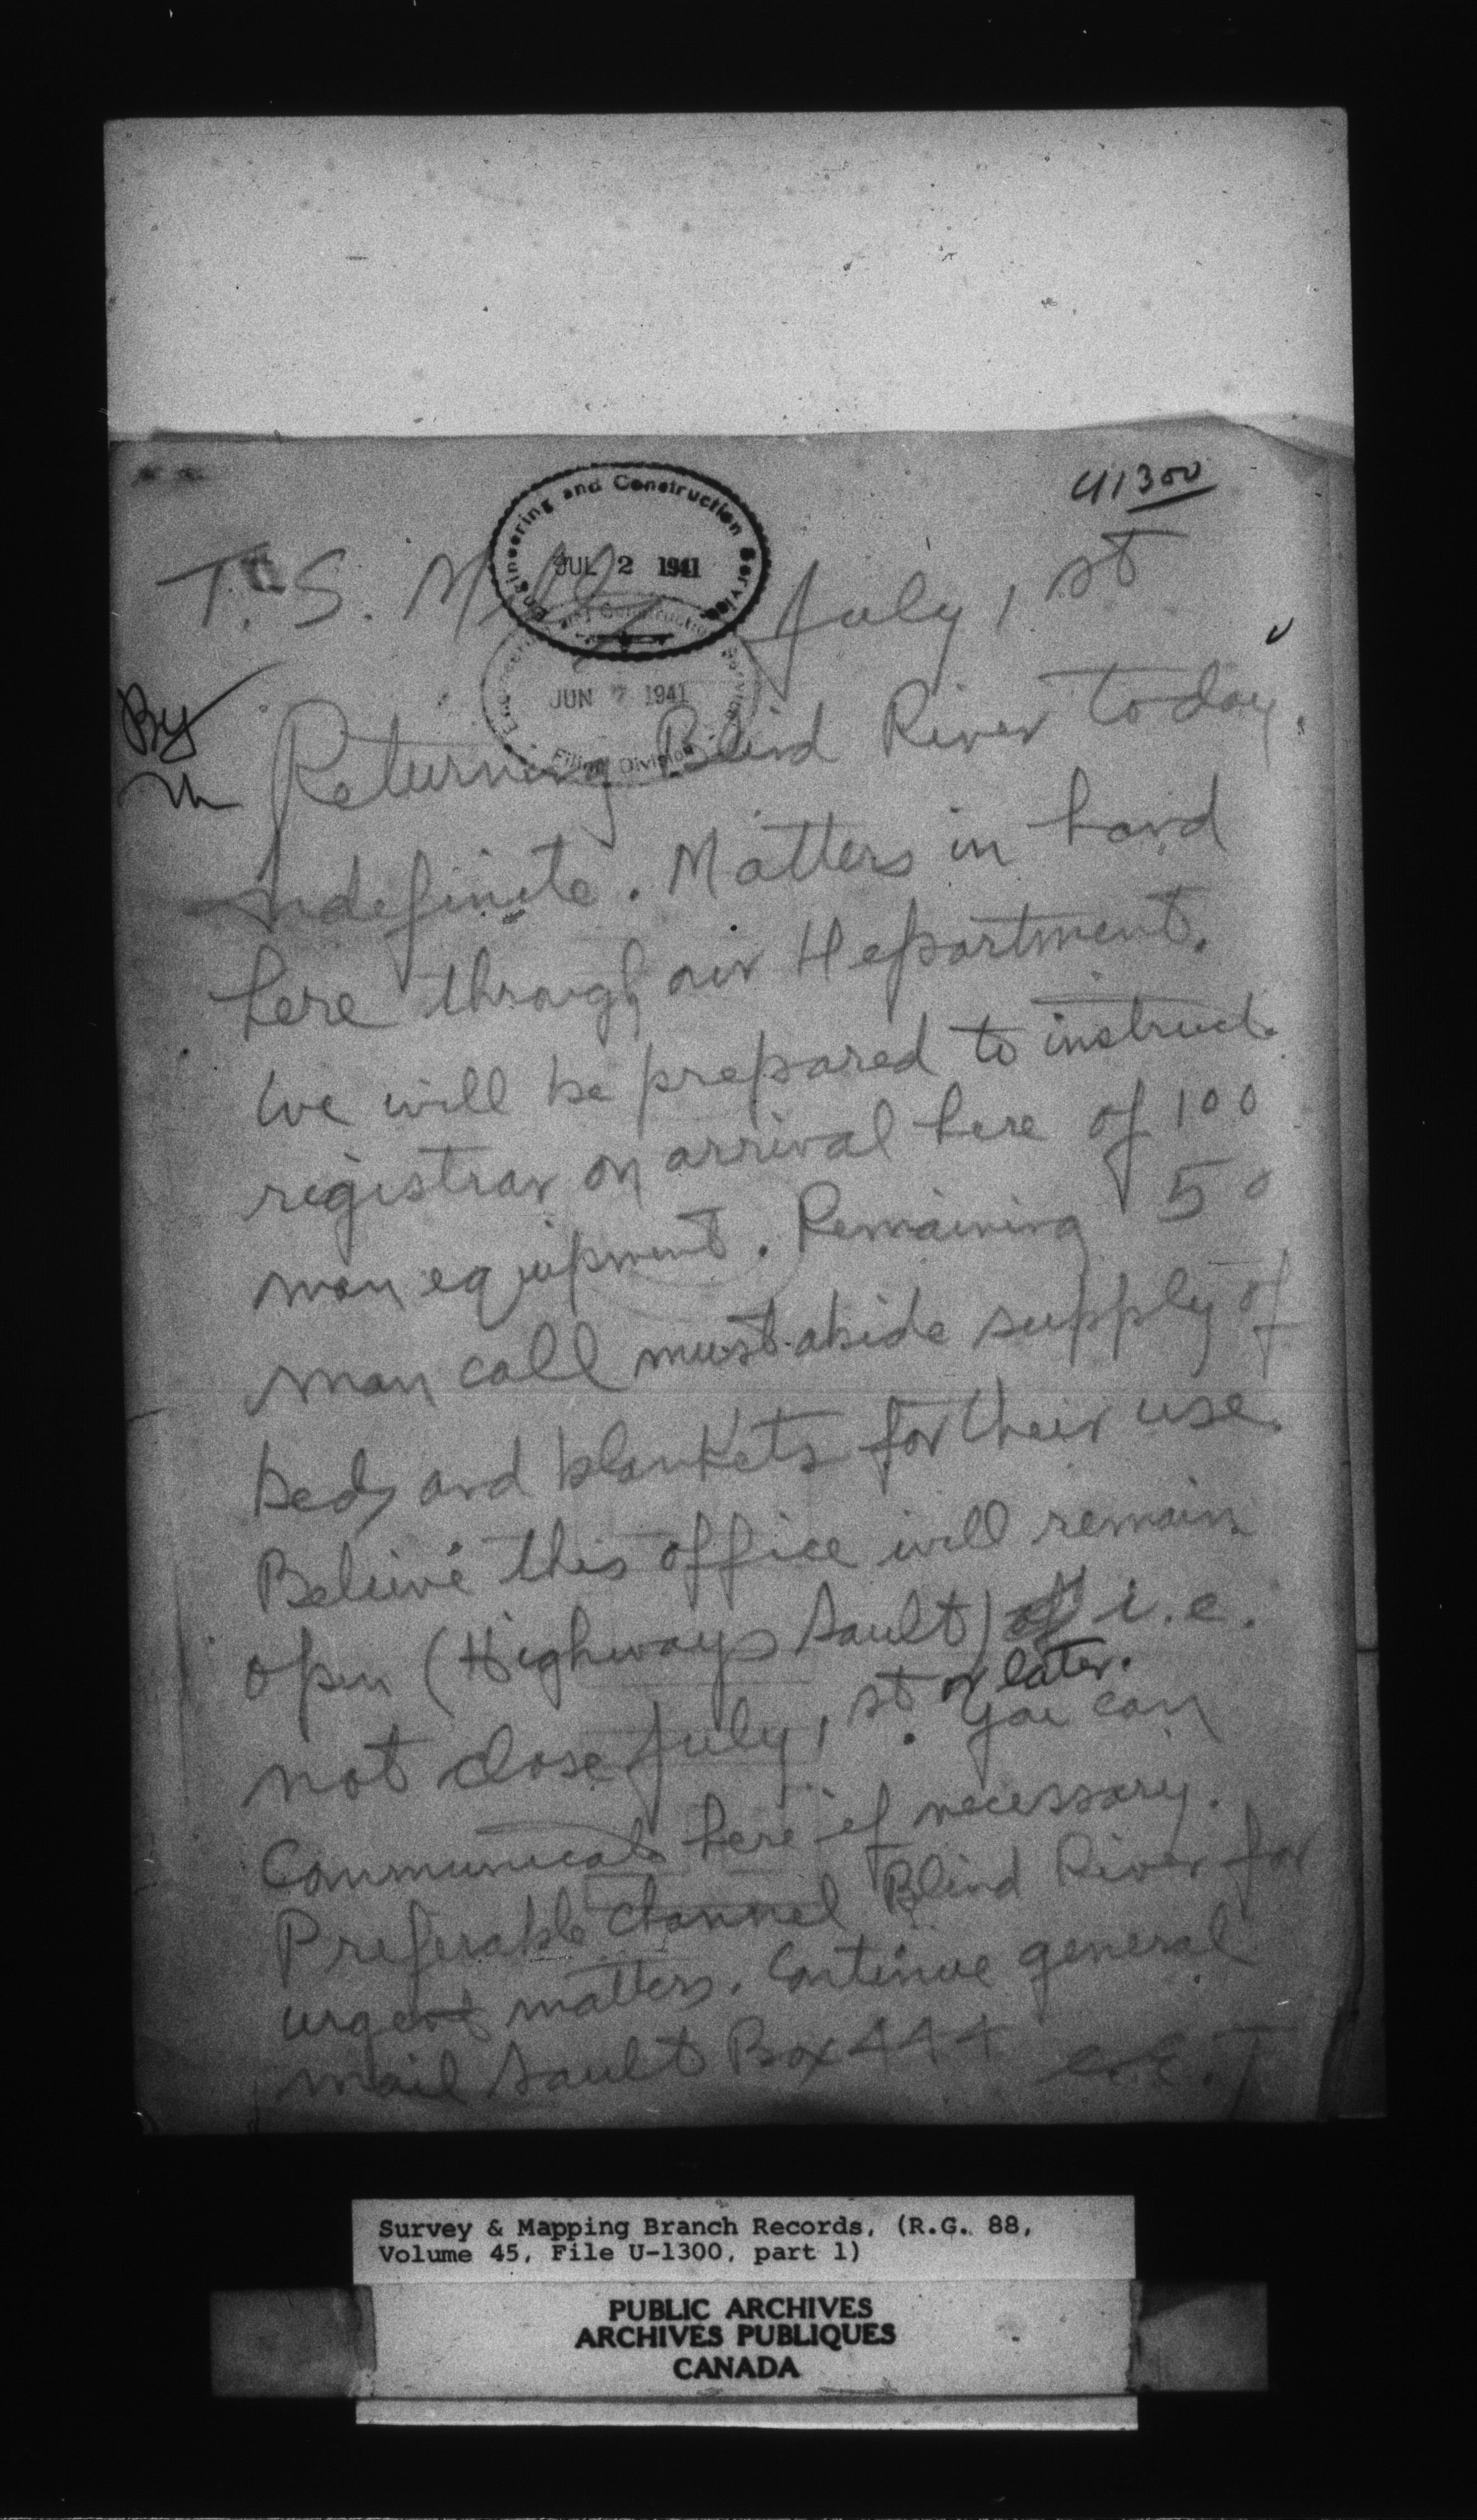 U1300
Engineering and Construction Service
JUL 2 1941
T. S. Mills July 1st
Engineering and Construction Service
JUN 7 1941
Filing Division
By
Returning Blind River today.
Indefinite. Matters in hand
here through our Hepartment.
We will be prepared to instruct
registrar on arrival here of 100
man equipment. Remaining 50
man call must abide supply of
beds and blankets for their use.
Believe this office will remain
open (Highways Sault) i.e.
not close July 1st or later. You can
Communicate here if necessary.
Preferable channel Blind River for
urgent matters. Continue general
mail Sault Box 444 C.E.T
Survey & Mapping Branch Records, (R.G. 88,
Volume 45, File U-1300, part 1)
PUBLIC ARCHIVES
ARCHIVES PUBLIQUES
CANADA